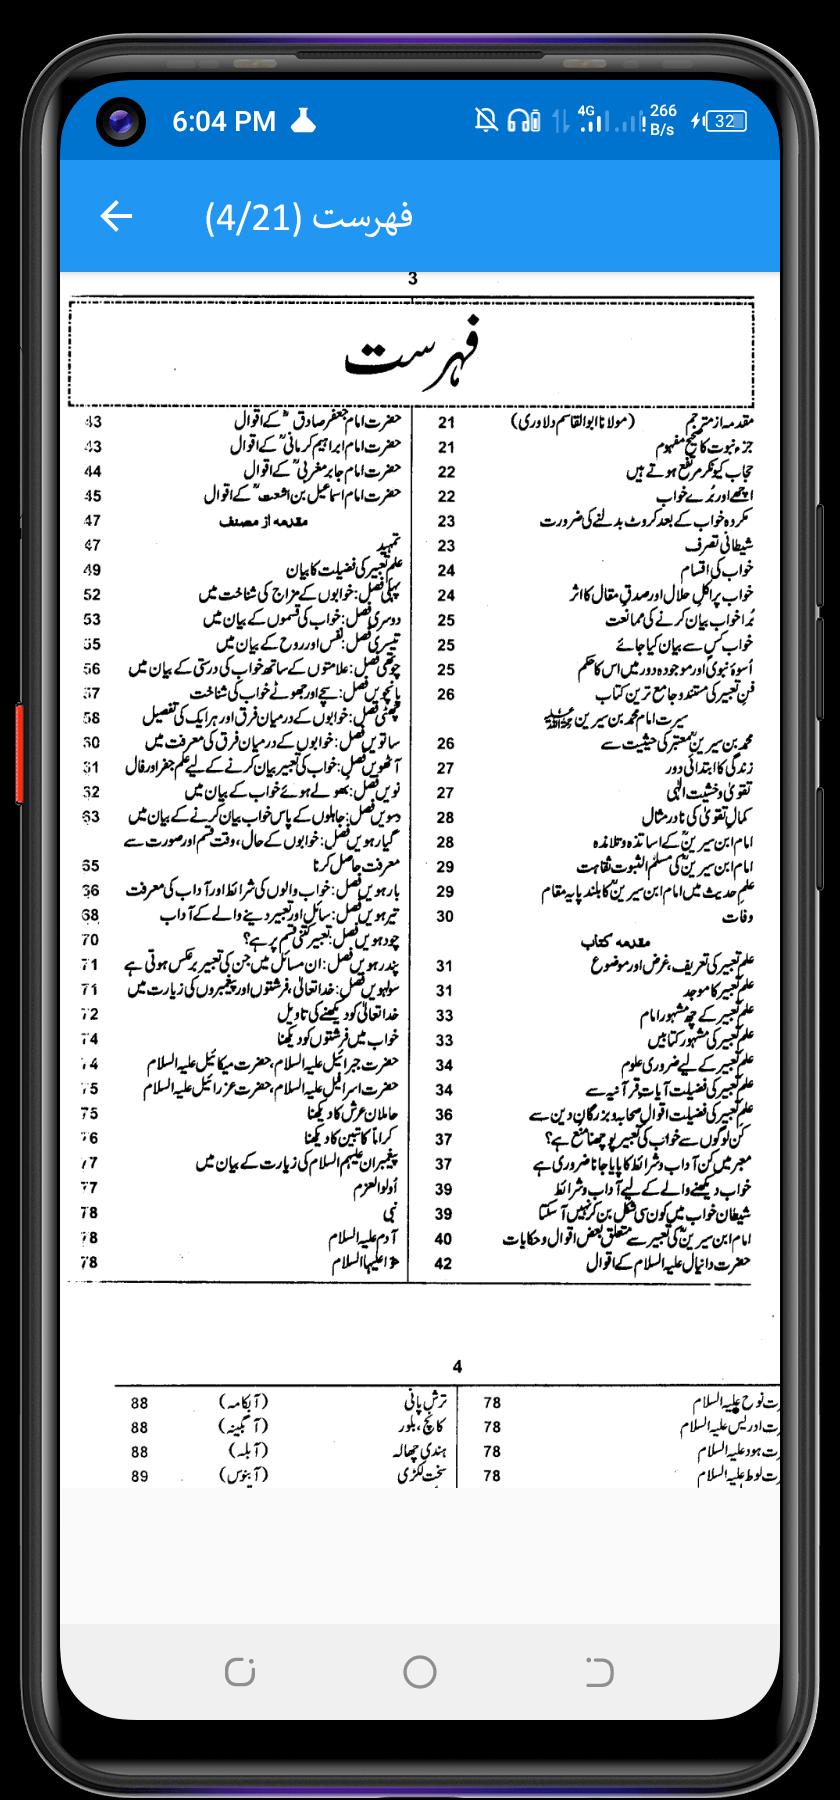 6:04 PM
4G
266 B/s
32
فهرست (4/21)
3
فہرست
مقدمہ از مترجم (مولانا ابوالقاسم دلاوری) 21
جزء نبوت کا صحیح مفہوم 21
حجاب کیونکر مرتفع ہوتے ہیں 22
اچھے اور بُرے خواب 22
مکروہ خواب کے بعد کروٹ بدلنے کی ضرورت 23
شیطانی تصرف 23
خواب کی اقسام 24
خواب پر اکلِ حلال اور صدقِ مقال کا اثر 24
بُرا خواب بیان کرنے کی ممانعت 25
خواب کس سے بیان کیا جائے 25
اُسوۂ نبویؐ اور موجودہ دور میں اس کا حکم 25
فنِ تعبیر کی مستند و جامع ترین کتاب 26
سیرت امام محمد بن سیرین
محمد بن سیرینؒ معتبر کی حیثیت سے 26
زندگی کا ابتدائی دور 27
تقویٰ و خشیت الٰہی 27
کمالِ تقویٰ کی نادر مثال 28
امام ابن سیرینؒ کے اساتذہ و تلامذہ 28
امام ابن سیرینؒ کی مسلم الثبوت ثقاہت 29
علم حدیث میں امام ابن سیرینؒ کا بلند پایہ مقام 29
وفات 30
مقدمہ کتاب
علم تعبیر کی تعریف، غرض اور موضوع 31
علم تعبیر کا موجد 31
علم تعبیر کے چھ مشہور امام 33
علم تعبیر کی مشہور کتابیں 33
علم تعبیر کے لیے ضروری علوم 34
علم تعبیر کی فضیلت آیاتِ قرآنیہ سے 34
علم تعبیر کی فضیلت اقوالِ صحابہ و بزرگانِ دین سے 36
کن لوگوں سے خواب کی تعبیر پوچھنا منع ہے؟ 37
معبر میں کن آداب و شرائط کا پایا جانا ضروری ہے 37
خواب دیکھنے والے کے لیے آداب و شرائط 39
شیطان خواب میں کون سی شکل بن کر نہیں آ سکتا 39
امام ابن سیرینؒ کی تعبیر سے متعلق بعض اقوال و حکایات 40
حضرت دانیال علیہ السلام کے اقوال 42
حضرت امام جعفر صادقؓ کے اقوال 43
حضرت امام ابراہیم کرمانیؒ کے اقوال 43
حضرت امام جابر مغربیؒ کے اقوال 44
حضرت امام اسماعیل بن اشعثؒ کے اقوال 45
مقدمہ از مصنف 47
تمہید 47
علم تعبیر کی فضیلت کا بیان 49
پہلی فصل: خوابوں کے مزاج کی شناخت میں 52
دوسری فصل: خواب کی قسموں کے بیان میں 53
تیسری فصل: نفس اور روح کے بیان میں 55
چوتھی فصل: علامتوں کے ساتھ خواب کی درستی کے بیان میں 56
پانچویں فصل: سچے اور جھوٹے خواب کی شناخت 57
چھٹی فصل: خوابوں کے درمیان فرق اور ہر ایک کی تفصیل 58
ساتویں فصل: خوابوں کے درمیان فرق کی معرفت میں 60
آٹھویں فصل: خواب کی تعبیر بیان کرنے کے لیے علم جفر اور فال 61
نویں فصل: بھولے ہوئے خواب کے بیان میں 62
دسویں فصل: جاہلوں کے پاس خواب بیان کرنے کے بیان میں 63
گیارہویں فصل: خوابوں کے حال، وقت قسم اور صورت سے
معرفت حاصل کرنا 65
بارہویں فصل: خواب والوں کی شرائط اور آداب کی معرفت 66
تیرہویں فصل: سائل اور تعبیر دینے والے کے آداب 68
چودہویں فصل: تعبیر کتنی قسم پر ہے؟ 70
پندرہویں فصل: ان مسائل میں جن کی تعبیر برعکس ہوتی ہے 71
سولہویں فصل: خدا تعالیٰ، فرشتوں اور پیغمبروں کی زیارت میں 71
خدا تعالیٰ کو دیکھنے کی تاویل 72
خواب میں فرشتوں کو دیکھنا 74
حضرت جبرائیل علیہ السلام، حضرت میکائیل علیہ السلام 74
حضرت اسرافیل علیہ السلام، حضرت عزرائیل علیہ السلام 75
حاملان عرش کا دیکھنا 75
کراماً کاتبین کا دیکھنا 76
پیغمبران علیہم السلام کی زیارت کے بیان میں 77
اولوالعزم 77
نبی 78
آدم علیہ السلام 78
حوا علیہا السلام 78
4
رت نوح علیہ السلام 78
رت ادریس علیہ السلام 78
رت ہود علیہ السلام 78
رت لوط علیہ السلام 78
ترش پانی (آبکامہ) 88
کانچ، بلور (آبگینہ) 88
ہندی چھالہ (آبلہ) 88
سخت لکڑی (آبنوس) 89